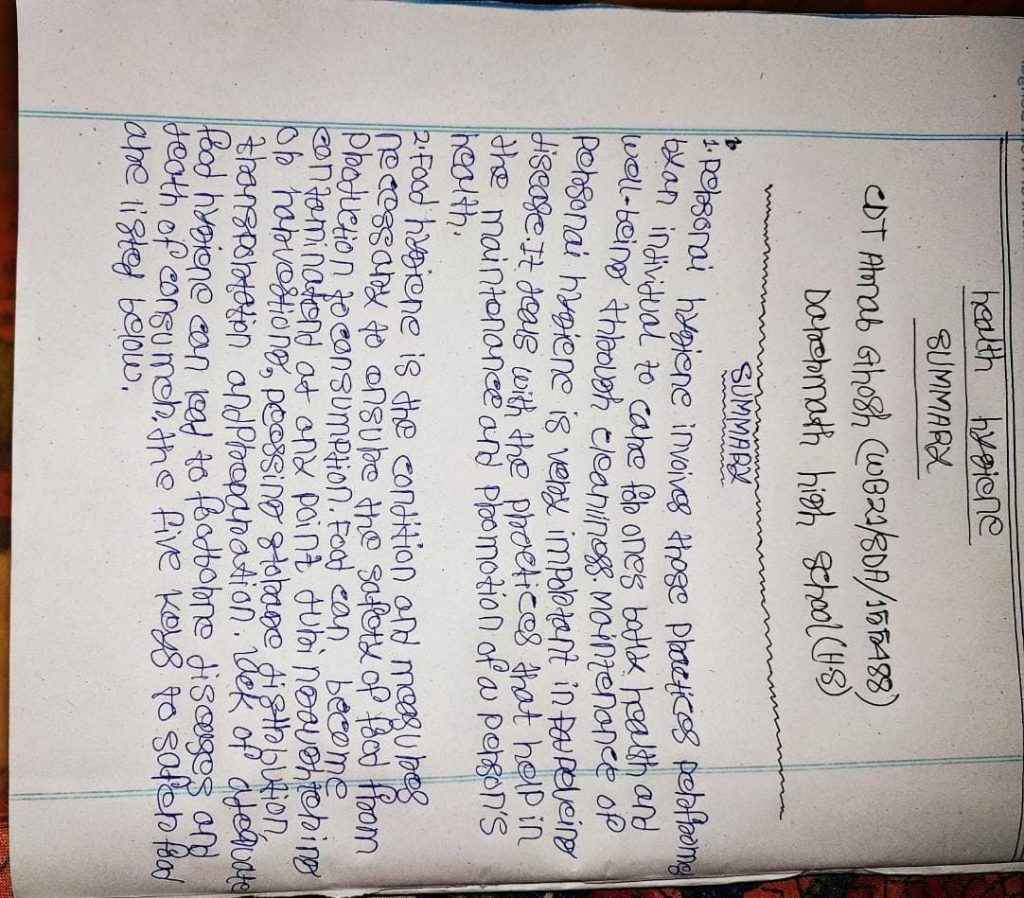 health hygiene
SUMMARY
CDT Arnab Ghosh (WB21/SDA/155488)
Dararhmath high school (H.S)
SUMMARY
1. Personal hygiene involves those practices perfromg
byan indivitual to care for ones botily health and
well-being through cleanlness. maintenance of
personal hygiene is very important in
disease. It deals with the practices that help in
the maintenance and promotion of a person's
health.
2. Food hygiene is the condition and measures
necessary to ensure the safety of food from
production to consumption. Food can become
contaminatend at any point
or harvesting, pessing storage distrbution
transportation and preparation. lack of adequate
food hygiene can lead to foodborne diseases and
death of consumer. the five keys to safer food
are listed below.